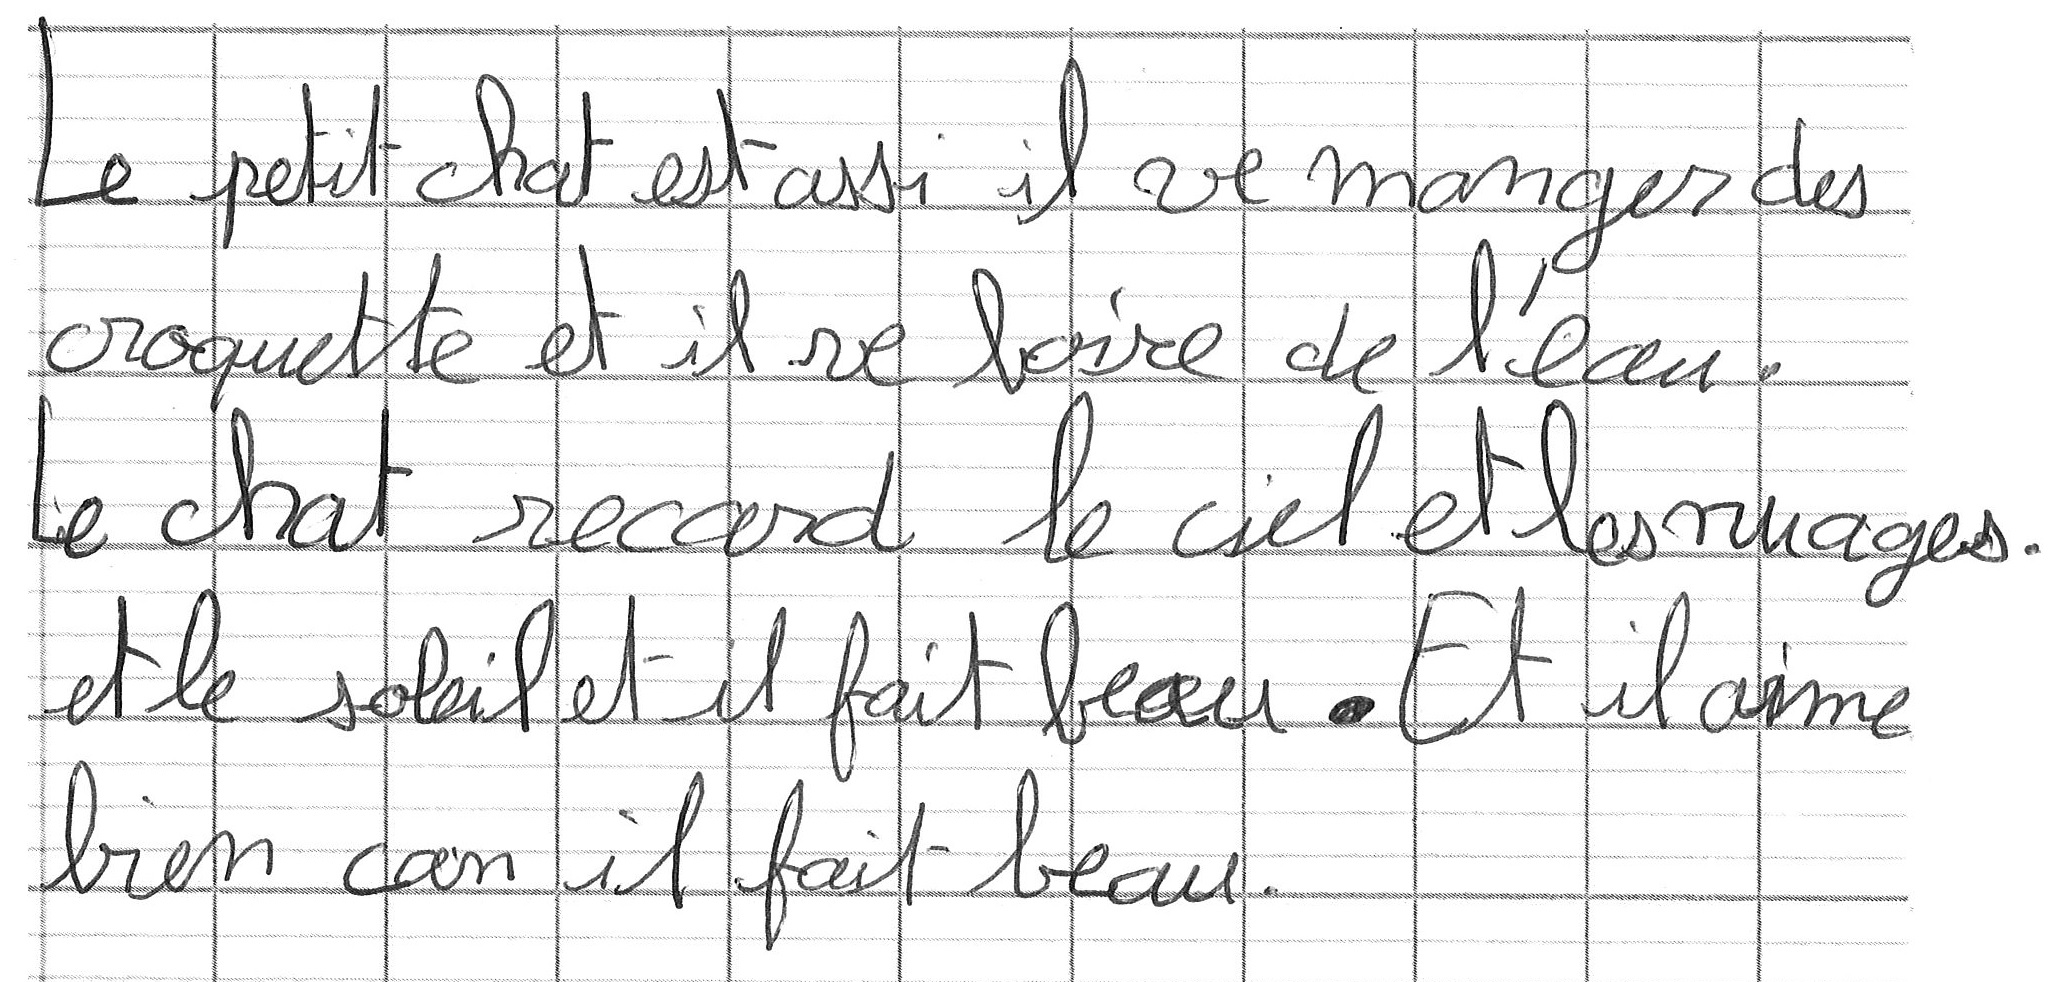 Le petit chat est assi il ve manger des
croquette et il ve boire de l'eau.
Le chat recard le ciel et les nuages.
et le soleil et il fait beau. Et il aime
bien can il fait beau.